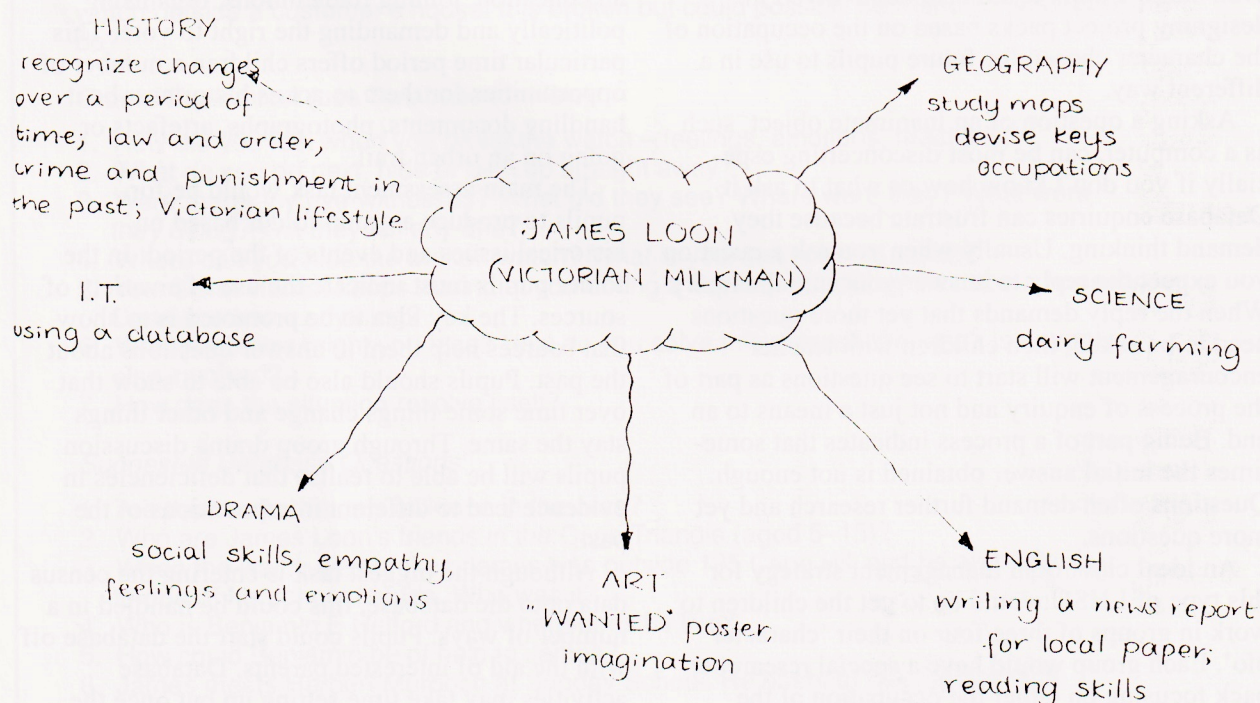 HISTORY
recognize changes
over a period of
time; law and order,
crime and punishment in
the past; Victorian lifestyle
GEOGRAPHY
study maps
devise keys
occupations
JAMES LOON
(VICTORIAN MILKMAN)
I.T.
using a database
SCIENCE
dairy farming
DRAMA
social skills, empathy,
feelings and emotions
ART
"WANTED" poster,
imagination
ENGLISH
writing a news report
for local paper;
reading skills